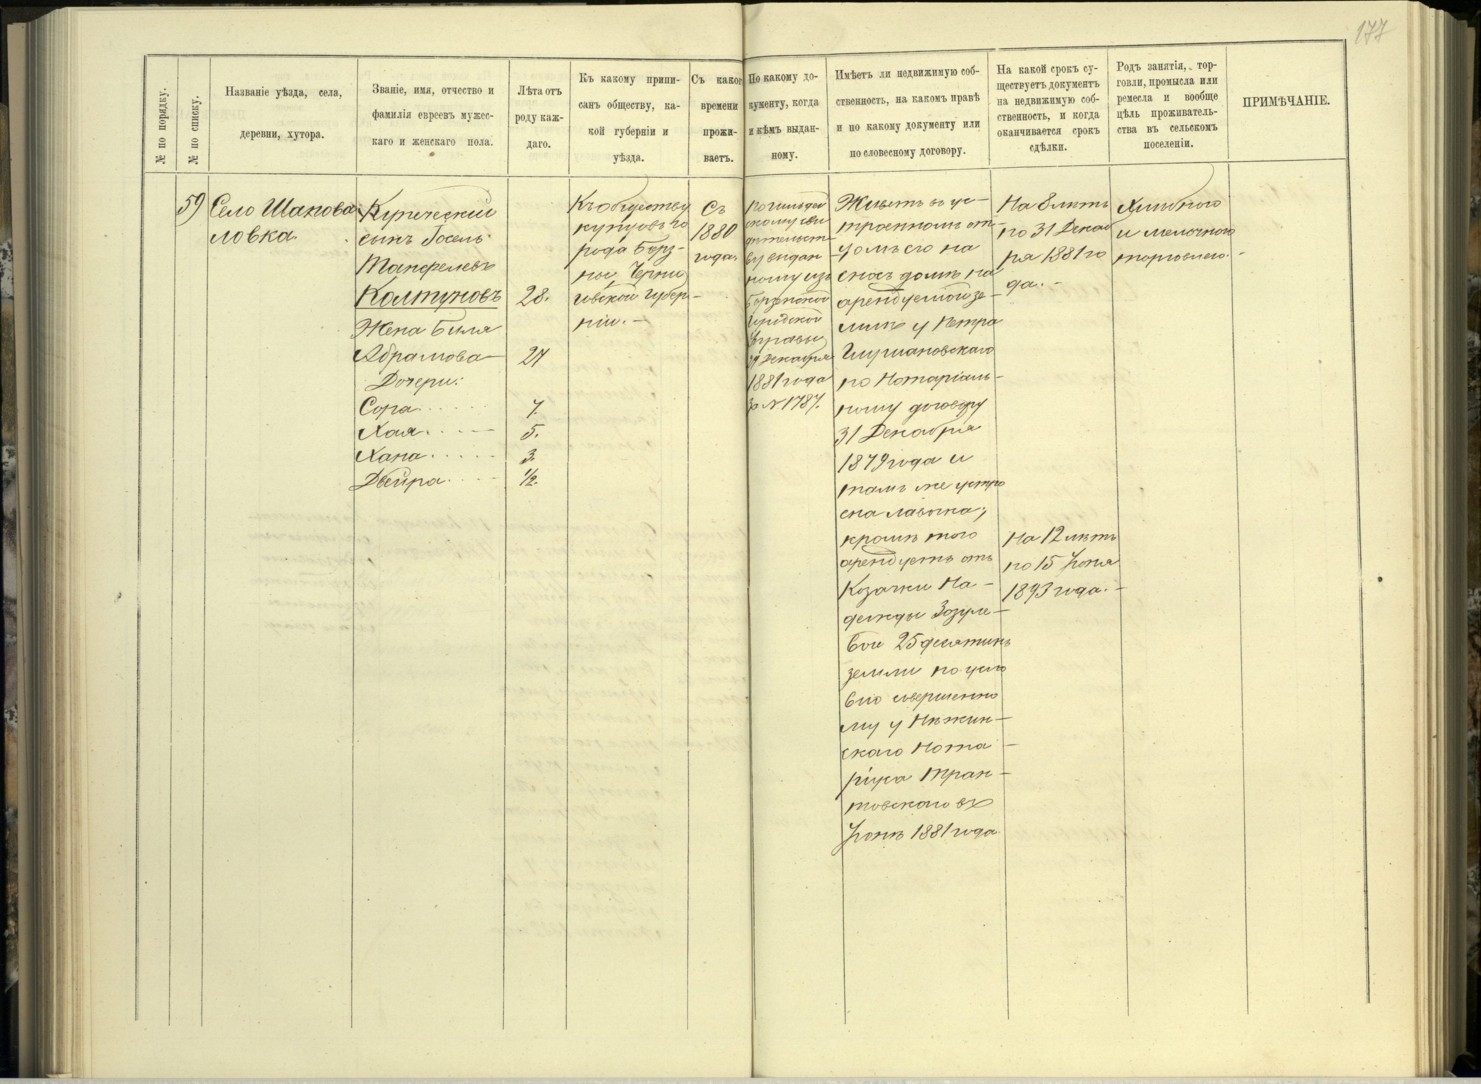 177
№ по порядку.
№ по списку.
Названіе уѣзда, села,
деревни, хутора.
Званіе, имя, отчество и
фамилія евреевъ мужес-
каго и женскаго пола.
Лѣта отъ
роду каж-
даго.
Къ какому припи-
санъ обществу, ка-
кой губерніи и
уѣзда.
Съ какого
времени
прожи-
ваетъ.
По какому до-
кументу, когда
и кѣмъ выдан-
ному.
Имѣетъ ли недвижимую соб-
ственность, на какомъ правѣ
и по какому документу или
по словесному договору.
На какой срокъ су-
ществуетъ документъ
на недвижимую соб-
ственность, и когда
оканчивается срокъ
сдѣлки.
Родъ занятія, тор-
говли, промысла или
ремесла и вообще
цѣль проживатель-
ства въ сельскомъ
поселеніи.
ПРИМѢЧАНІЕ.
59
Село Шапова
ловка.
Купеческій
сынъ Іосель
Колтуновъ
28.
Жена Биля
Абрамова
27
Дочери:
Сора
7.
Хая
5.
Хана
3.
Двейра
1/2.
Къ обществу
купцовъ го
рода Борз-
ны Черни
говской губер-
ніи.
Съ
1880
года
по гильдей
скому сви
дѣтельст-
ву выдан
ному изъ
Борзенской
Городской
Управы
Декабря
1881 года
за № 1787.
Живетъ въ ус-
троенномъ от-
цомъ его на
сносъ домѣ на
арендуемой зе-
млѣ у Петра
по Нотаріаль-
ному договору
31 Декабря
1879 года и
тамъ же устро
ена лавочка;
кромѣ того
арендуетъ отъ
Козачки На-
дежды Зозуле-
вой 25 десятинъ
земли по усло
вію совершенно
му у Нѣжин-
скаго Нота
ріуса Тран-
товскаго въ
Іюнѣ 1881 года
На 8 лѣтъ
по 31 Декаб
ря 1881 го
да.
На 12 лѣтъ
по 15 Іюня
1893 года.
Хлѣбного
и мелочного
торговлею.